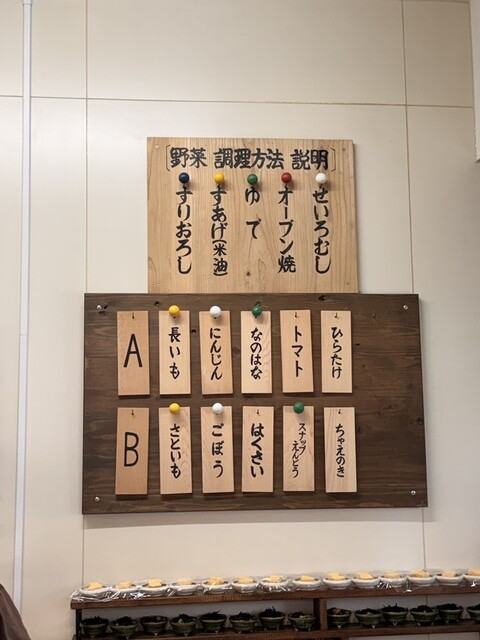 ［野菜 調理方法 説明］
せいろむし
オーブン焼
ゆで
すあげ(米油)
すりおろし
A
長いも
にんじん
なのはな
トマト
ひらたけ
B
さといも
ごぼう
はくさい
スナップえんどう
ちゃえのき